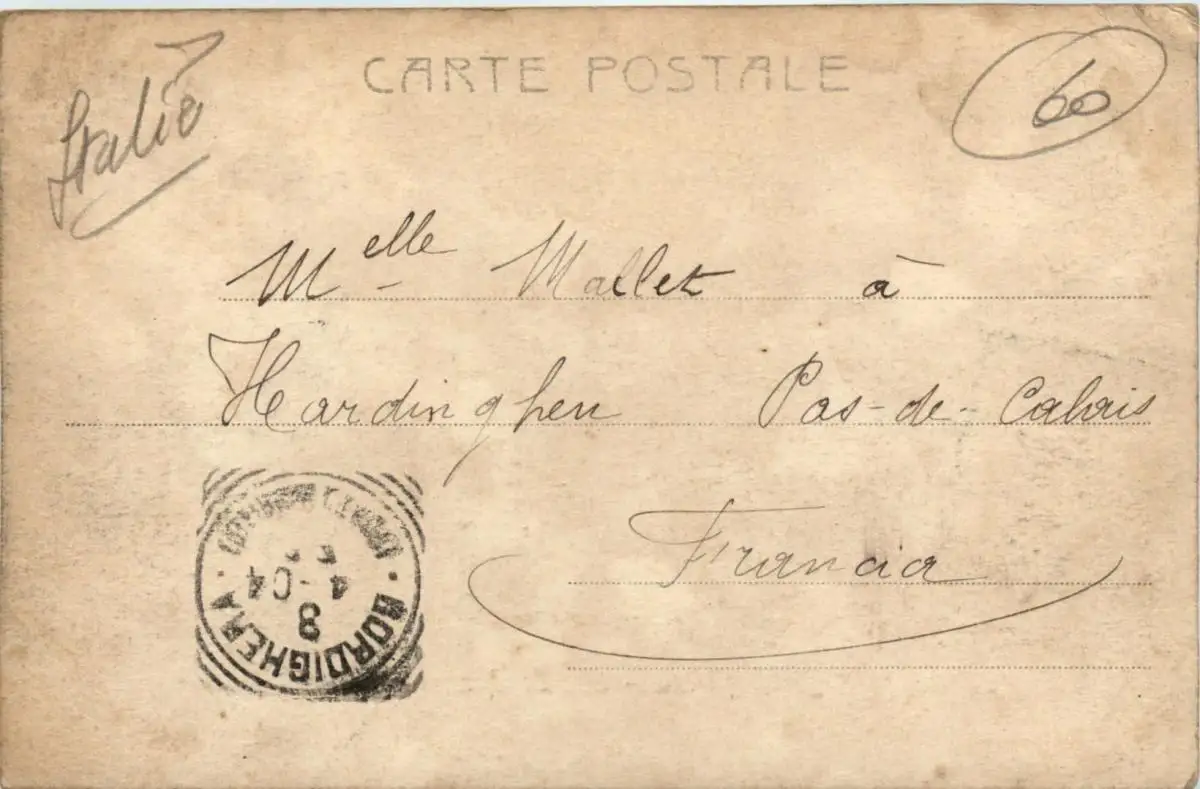 CARTE POSTALE
Italie
60
Melle Mallet à
Hardinghen Pas-de-Calais
Francia
BORDIGHERA
8
4-04